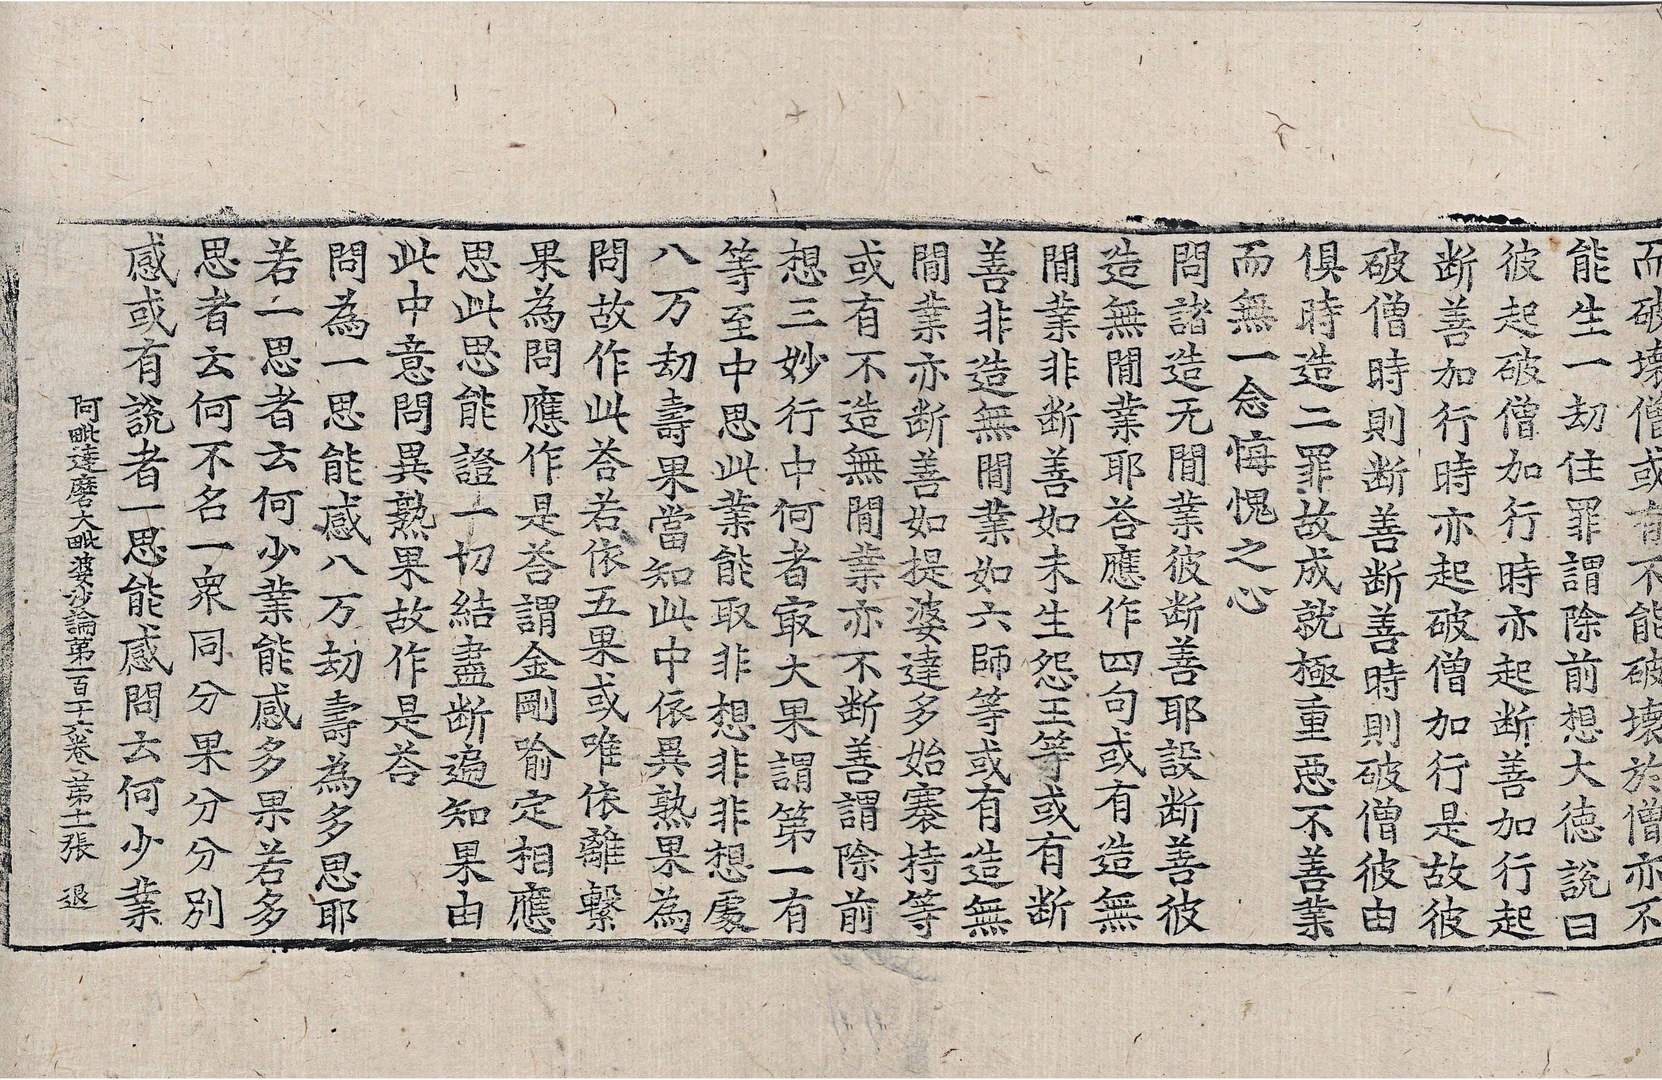 而破壞僧或有不能破壞於僧亦不
能生一劫住罪謂除前想大徳說曰
彼起破僧加行時亦起断善加行起
断善加行時亦起破僧加行是故彼
破僧時則断善断善時則破僧彼由
俱時造二罪故成就極重惡不善業
而無一念悔愧之心
問諸造无間業彼断善耶設断善彼
造無間業耶荅應作四句或有造無
間業非断善如未生怨王等或有断
善非造無間業如六師等或有造無
間業亦断善如提婆達多始騫持等
或有不造無間業亦不断善謂除前
想三妙行中何者㝡大果謂第一有
等至中思此業能取非想非非想處
八万劫壽果當知此中依異熟果為
問故作此荅若依五果或唯依離繫
果為問應作是荅謂金剛喻定相應
思此思能證一切結盡断遍知果由
此中意問異熟果故作是荅
問為一思能感八万劫壽為多思耶
若一思者云何少業能感多果若多
思者云何不名一衆同分果分分別
感或有說者一思能感問云何少業
阿毗達磨大毗婆沙論第一百十六卷 第十一張 退